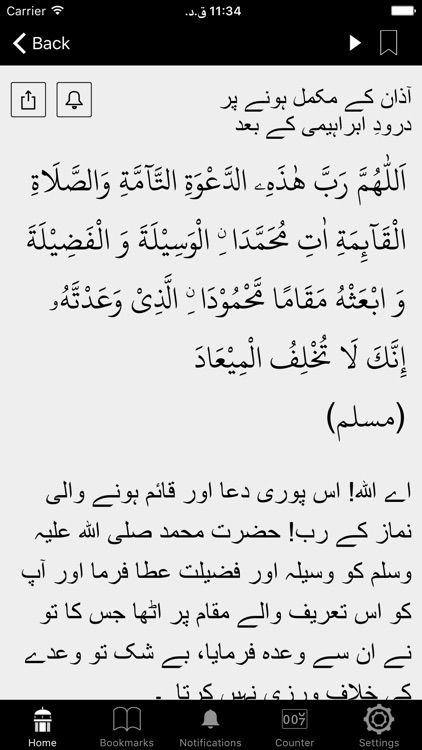 Carrier 11:34 ق.د.
Back
آذان کے مکمل ہونے پر
درودِ ابراہیمی کے بعد
اَللّٰهُمَّ رَبَّ هٰذَهِ الدَّعْوَةِ التَّآمَّةِ وَالصَّلَاةِ
الْقَآئِمَةِ اٰتِ مُحَمَّدَا ۨ الْوَسِيْلَةَ وَ الْفَضِيْلَةَ
وَ ابْعَثْهُ مَقَامًا مَّحْمُوْدَا ۨ الَّذِىْ وَعَدْتَّهُ
إِنَّكَ لَا تُخْلِفُ الْمِيْعَادَ
(مسلم)
اے اللہ! اس پوری دعا اور قائم ہونے والی
نماز کے رب! حضرت محمد صلی اللہ علیہ
وسلم کو وسیلہ اور فضیلت عطا فرما اور آپ
کو اس تعریف والے مقام پر اٹھا جس کا تو
نے ان سے وعدہ فرمایا، بے شک تو وعدے
کی خلاف ورزی نہیں کرتا ۔
Home Bookmarks Notifications Counter Settings